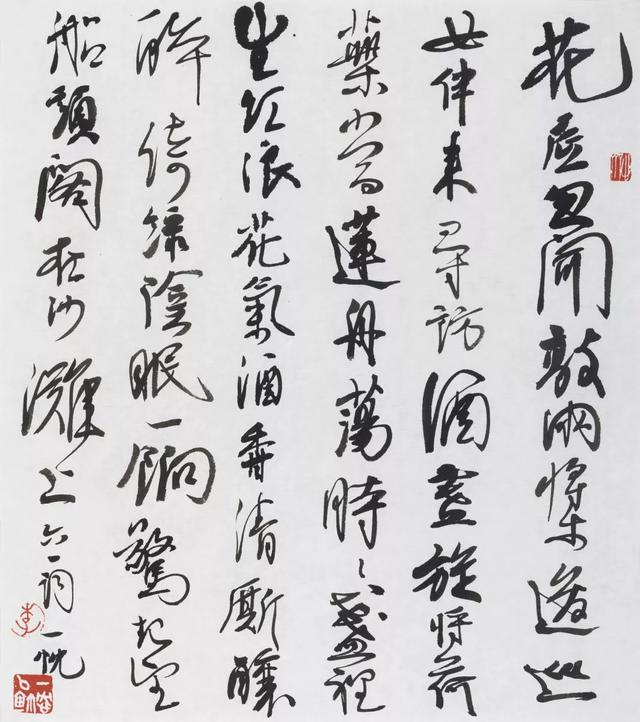 花底忽聞敲兩槳逡巡
女伴來尋訪酒盞旋將荷
葉當蓮舟蕩時々盞裡
生紅浪花氣酒香清廝釀
醉倚綠陰眠一餉驚起望
船頭閣在沙灘上 六一詞 一
李